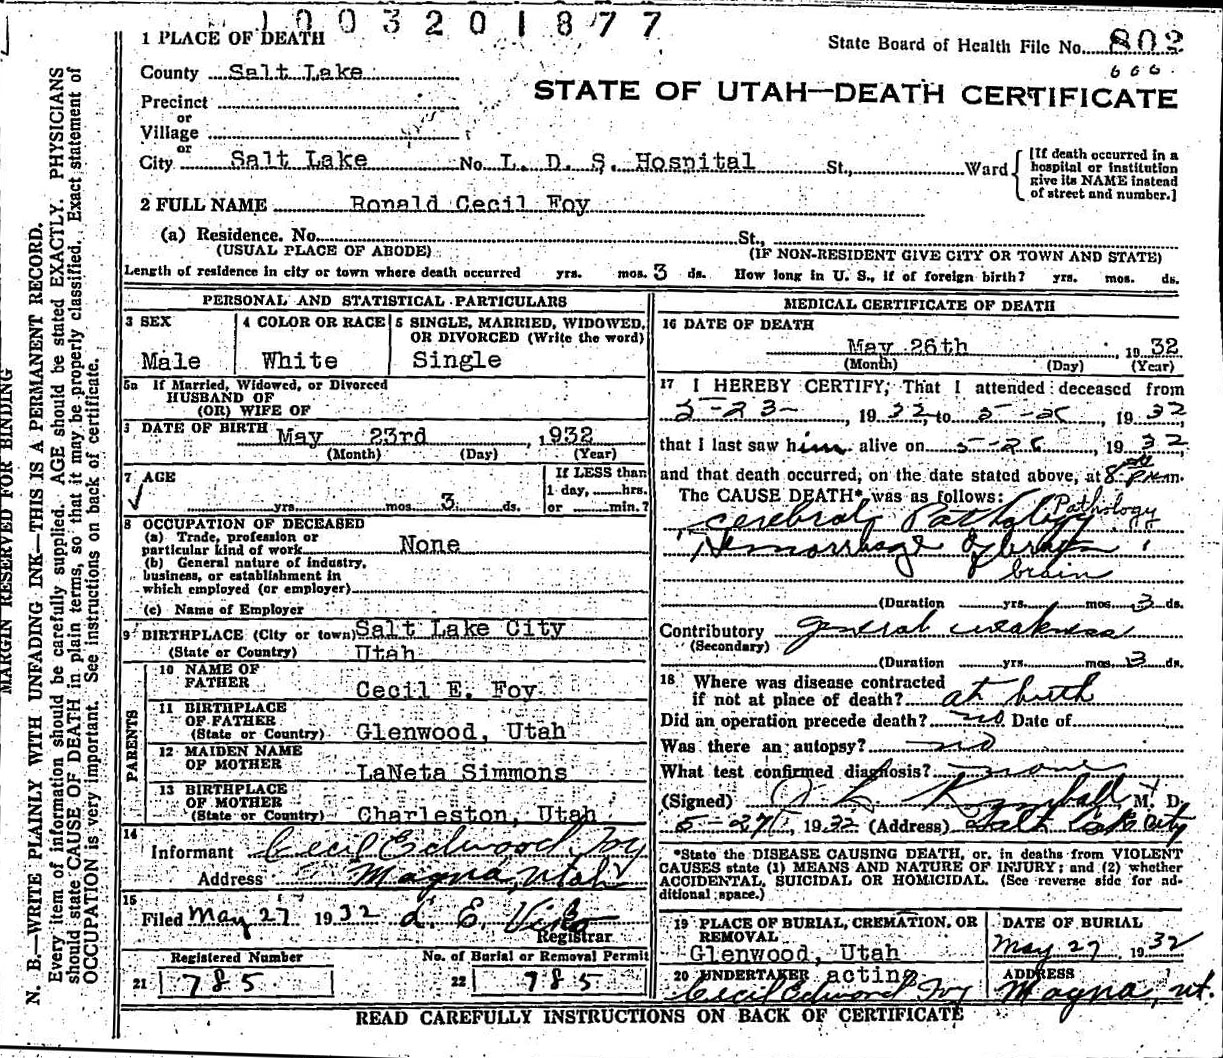 1003201877
1 PLACE OF DEATH
State Board of Health File No. 802
666.
County Salt Lake
STATE OF UTAH—DEATH CERTIFICATE
Precinct
or
Village
or
City Salt Lake No. L. D. S. Hospital St., Ward
[If death occurred in a hospital or institution give its NAME instead of street and number.]
2 FULL NAME Ronald Cecil Foy
(a) Residence. No. St.,
(USUAL PLACE OF ABODE) (IF NON-RESIDENT GIVE CITY OR TOWN AND STATE)
Length of residence in city or town where death occurred yrs. mos. 3 ds. How long in U. S., if of foreign birth? yrs. mos. ds.
PERSONAL AND STATISTICAL PARTICULARS
3 SEX
Male
4 COLOR OR RACE
White
5 SINGLE, MARRIED, WIDOWED,
OR DIVORCED (Write the word)
Single
5a If Married, Widowed, or Divorced
HUSBAND OF
(OR) WIFE OF
DATE OF BIRTH May 23rd, 1932
(Month) (Day) (Year)
7 AGE
yrs. mos. 3 ds.
If LESS than
1 day, hrs.
or min.?
8 OCCUPATION OF DECEASED
(a) Trade, profession or
particular kind of work None
(b) General nature of industry,
business, or establishment in
which employed (or employer)
(c) Name of Employer
9 BIRTHPLACE (City or town) Salt Lake City
(State or Country) Utah
PARENTS
10 NAME OF
FATHER Cecil E. Foy
11 BIRTHPLACE
OF FATHER
(State or Country) Glenwood, Utah
12 MAIDEN NAME
OF MOTHER LaNeta Simmons
13 BIRTHPLACE
OF MOTHER
(State or Country) Charleston, Utah
14
Informant Cecil Edwood Foy
Address Magna, Utah
15
Filed May 27 1932
Registrar
Registered Number
21 785
No. of Burial or Removal Permit
22 785
MEDICAL CERTIFICATE OF DEATH
16 DATE OF DEATH
May 26th, 1932
(Month) (Day) (Year)
17 I HEREBY CERTIFY, That I attended deceased from
5-23-, 1932, to 5-26, 1932,
that I last saw him alive on 5-26, 1932,
and that death occurred, on the date stated above, at 8 P m.
The CAUSE DEATH* was as follows:
Pathology
Cerebral Pathology
Hemorrhage of brain
brain
(Duration yrs. mos. 3 ds.
Contributory general weakness
(Secondary)
(Duration yrs. mos. 3 ds.
18 Where was disease contracted
if not at place of death? at birth
Did an operation precede death? no Date of
Was there an autopsy? no
What test confirmed diagnosis? none
(Signed) Kimball M. D.
5-27, 1932 (Address) Salt Lake City
*State the DISEASE CAUSING DEATH, or, in deaths from VIOLENT
CAUSES state (1) MEANS AND NATURE OF INJURY; and (2) whether
ACCIDENTAL, SUICIDAL OR HOMICIDAL. (See reverse side for ad-
ditional space.)
19 PLACE OF BURIAL, CREMATION, OR
REMOVAL
Glenwood, Utah
DATE OF BURIAL
May 27 1932
20 UNDERTAKER acting
Cecil Edwood Foy
ADDRESS
Magna, Ut.
READ CAREFULLY INSTRUCTIONS ON BACK OF CERTIFICATE
MARGIN RESERVED FOR BINDING
N. B.—WRITE PLAINLY WITH UNFADING INK—THIS IS A PERMANENT RECORD.
Every item of information should be carefully supplied. AGE should be stated EXACTLY. PHYSICIANS
should state CAUSE OF DEATH in plain terms, so that it may be properly classified. Exact statement of
OCCUPATION is very important. See instructions on back of certificate.